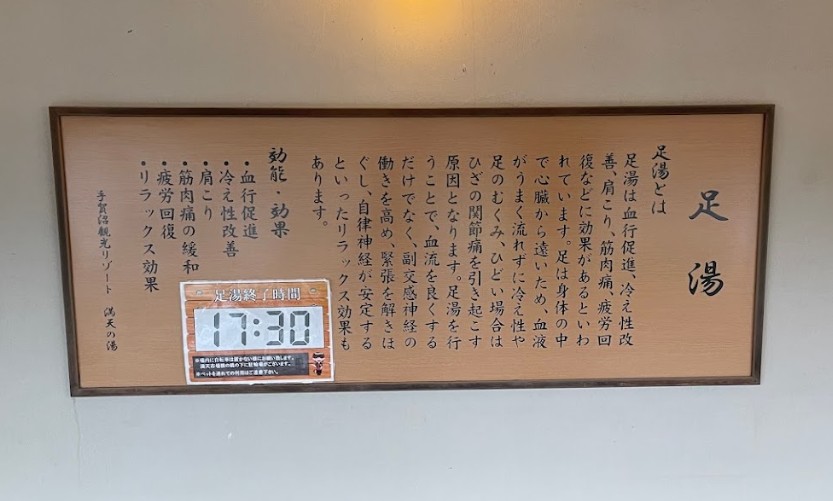 足湯
足湯とは
足湯は血行促進、冷え性改
善、肩こり、筋肉痛、疲労回
復などに効果があるといわ
れています。足は身体の中
で心臓から遠いため、血液
がうまく流れずに冷え性や
足のむくみ、ひどい場合は
ひざの関節痛を引き起こす
原因となります。足湯を行
うことで、血流を良くする
だけでなく、副交感神経の
働きを高め、緊張を解きほ
ぐし、自律神経が安定する
といったリラックス効果も
あります。
効能・効果
・血行促進
・冷え性改善
・肩こり
・筋肉痛の緩和
・疲労回復
・リラックス効果
手賀沼観光リゾート 満天の湯
足湯終了時間
17:30